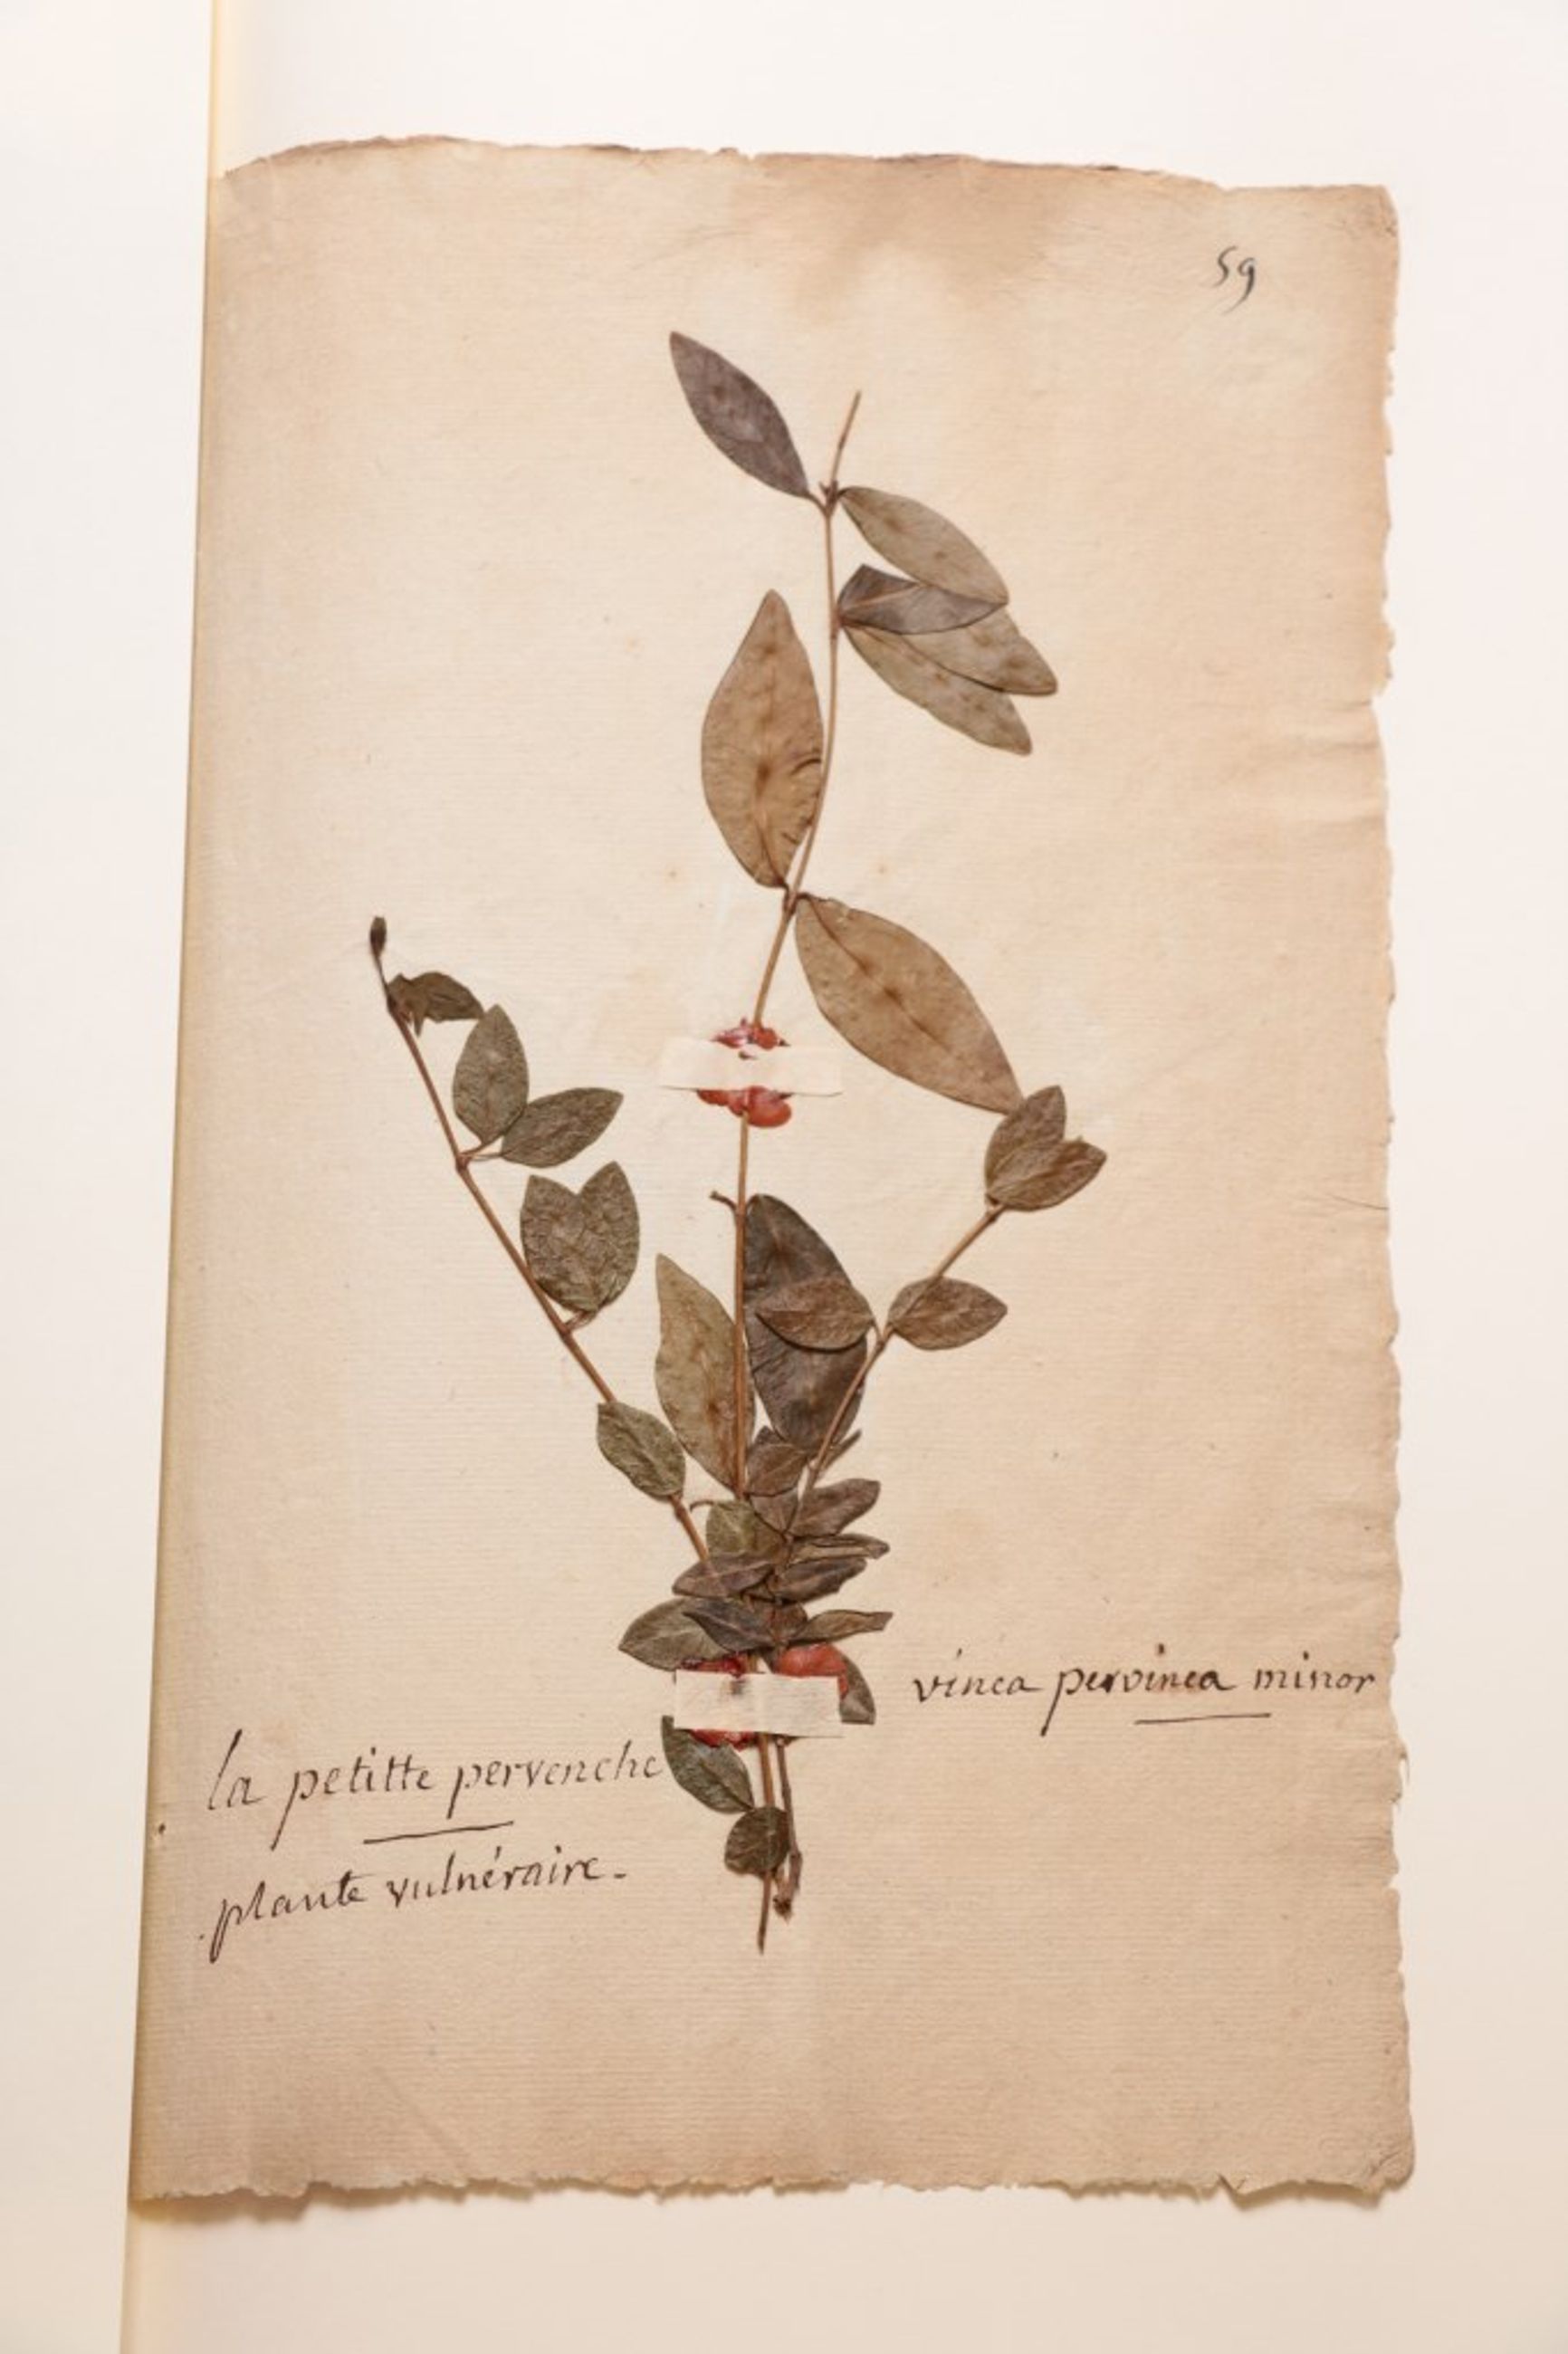 59
vinca pervinca minor
la petitte pervenche
plante vulnéraire.